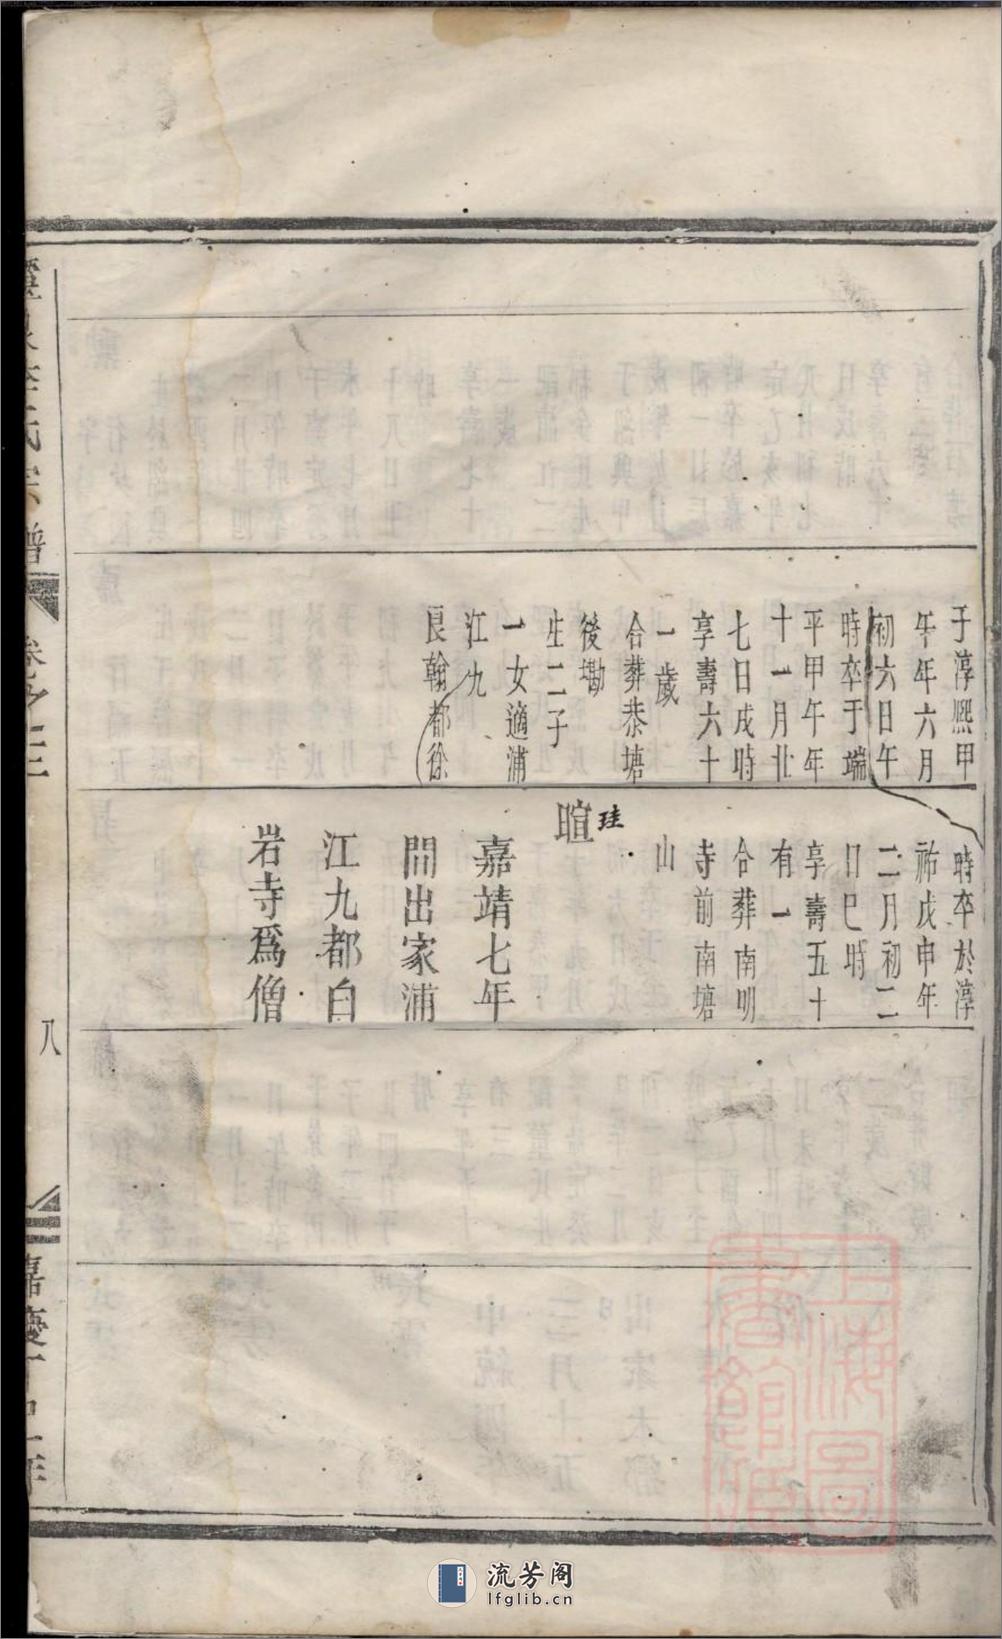 于淳熈甲
午年六月
初六日午
時卒于端
平甲午年
十一月廿
七日戌時
享壽六十
一歲
合葬恭塘
後墈
生二子
一女適浦
江九
都徐
良翰
時卒於淳
祐戊申年
二月初二
日巳時
享壽五十
有一
合葬南明
寺前南塘
山
暄
珪
嘉靖七年
間出家浦
江九都白
岩寺爲僧
氏宗譜
卷之二
八
嘉慶丁巳年
上海圖
書館藏
流芳阁
lfglib.cn